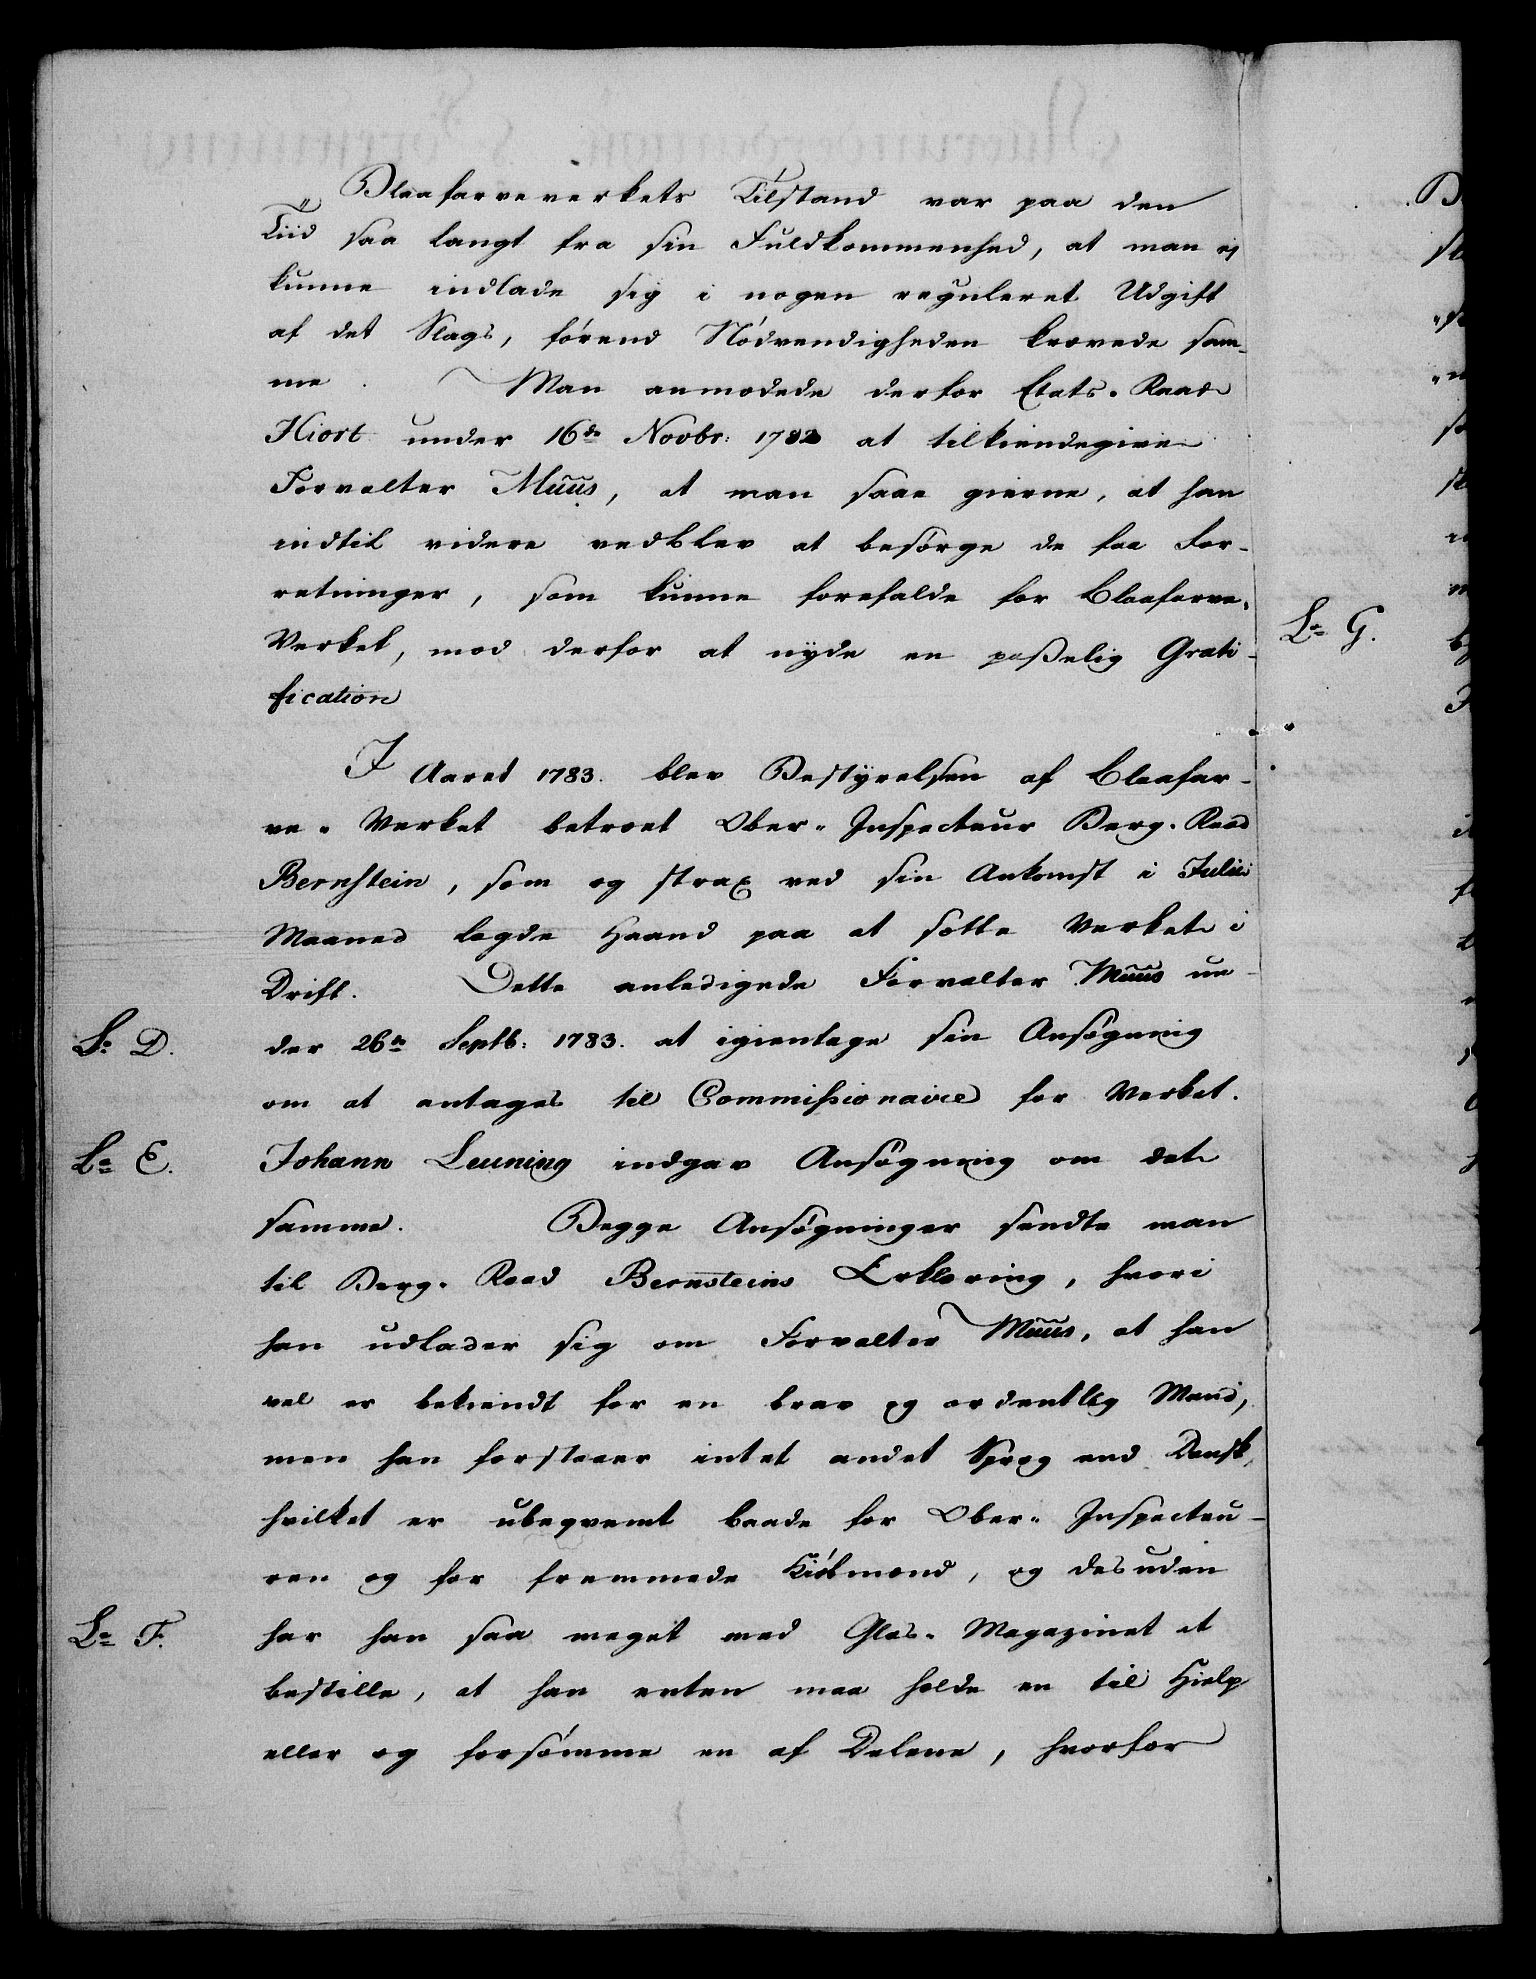 Blaafarveverkets Tilstand var paa den
Tiid saa langt fra sin Fuldkommenhed, at man ej
kunne indlade sig i nogen reguleret Udgift
af det Slags, førend Nødvendigheden krævede sam-
me. Man anmodede derfor Etats-Raad
Hiort under 16de Novbr: 1782 at tilkiendegive
Forvalter Muus, at man saae gierne, at han
indtil videre vedblev at besørge de faa For-
retninger, som kunne forefalde for Blaafarve-
Verket, mod derfor at nyde en paßelig Grati-
fication
I Aaret 1783. blev Bestyrelsen af Blaafar-
ve- Verket betroet Ober- Inspecteur Berg-Raad
Bernstein, som og strax ved sin Ankomst i Julii
Maaned lagde Haand paa at sætte Verket i
Drift. Dette anledigede Forvalter Muus un-
La D. der 26de Septb: 1783. at igientage sin Ansøgning
om at antages til Commissionaire for Verket.
La E. Johann Leuning indgav Ansøgning om det
samme. Begge Ansøgninger sendte man
til Berg-Raad Bernsteins Erklæring, hvori
han udlader sig om Forvalter Muus, at han
vel er bekiendt for en brav og ordentlig Mand,
men han forstaaer intet andet Sprog end Dansk,
hvilket er ubeqvemt baade for Ober- Inspecteu-
ren og for fremmede Kiøbmænd, og desuden
La F. har han saa meget med Glas- Magazinet at
bestille, at han enten maa holde en til Hielp
eller og forsømme en af Delene, hvorfor
La G.